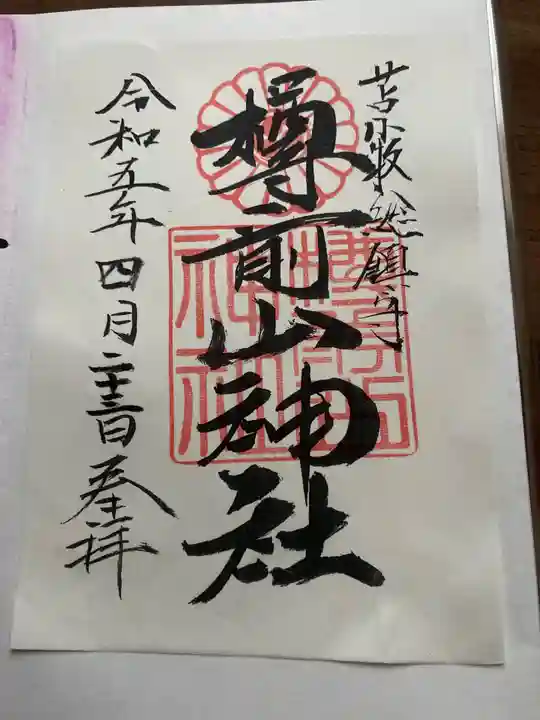 苫小牧総鎮守
樽前山神社
令和五年四月二十三日奉拝